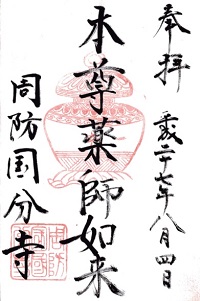 奉拝
平成二十七年八月四日
本尊薬師如来
周防国分寺